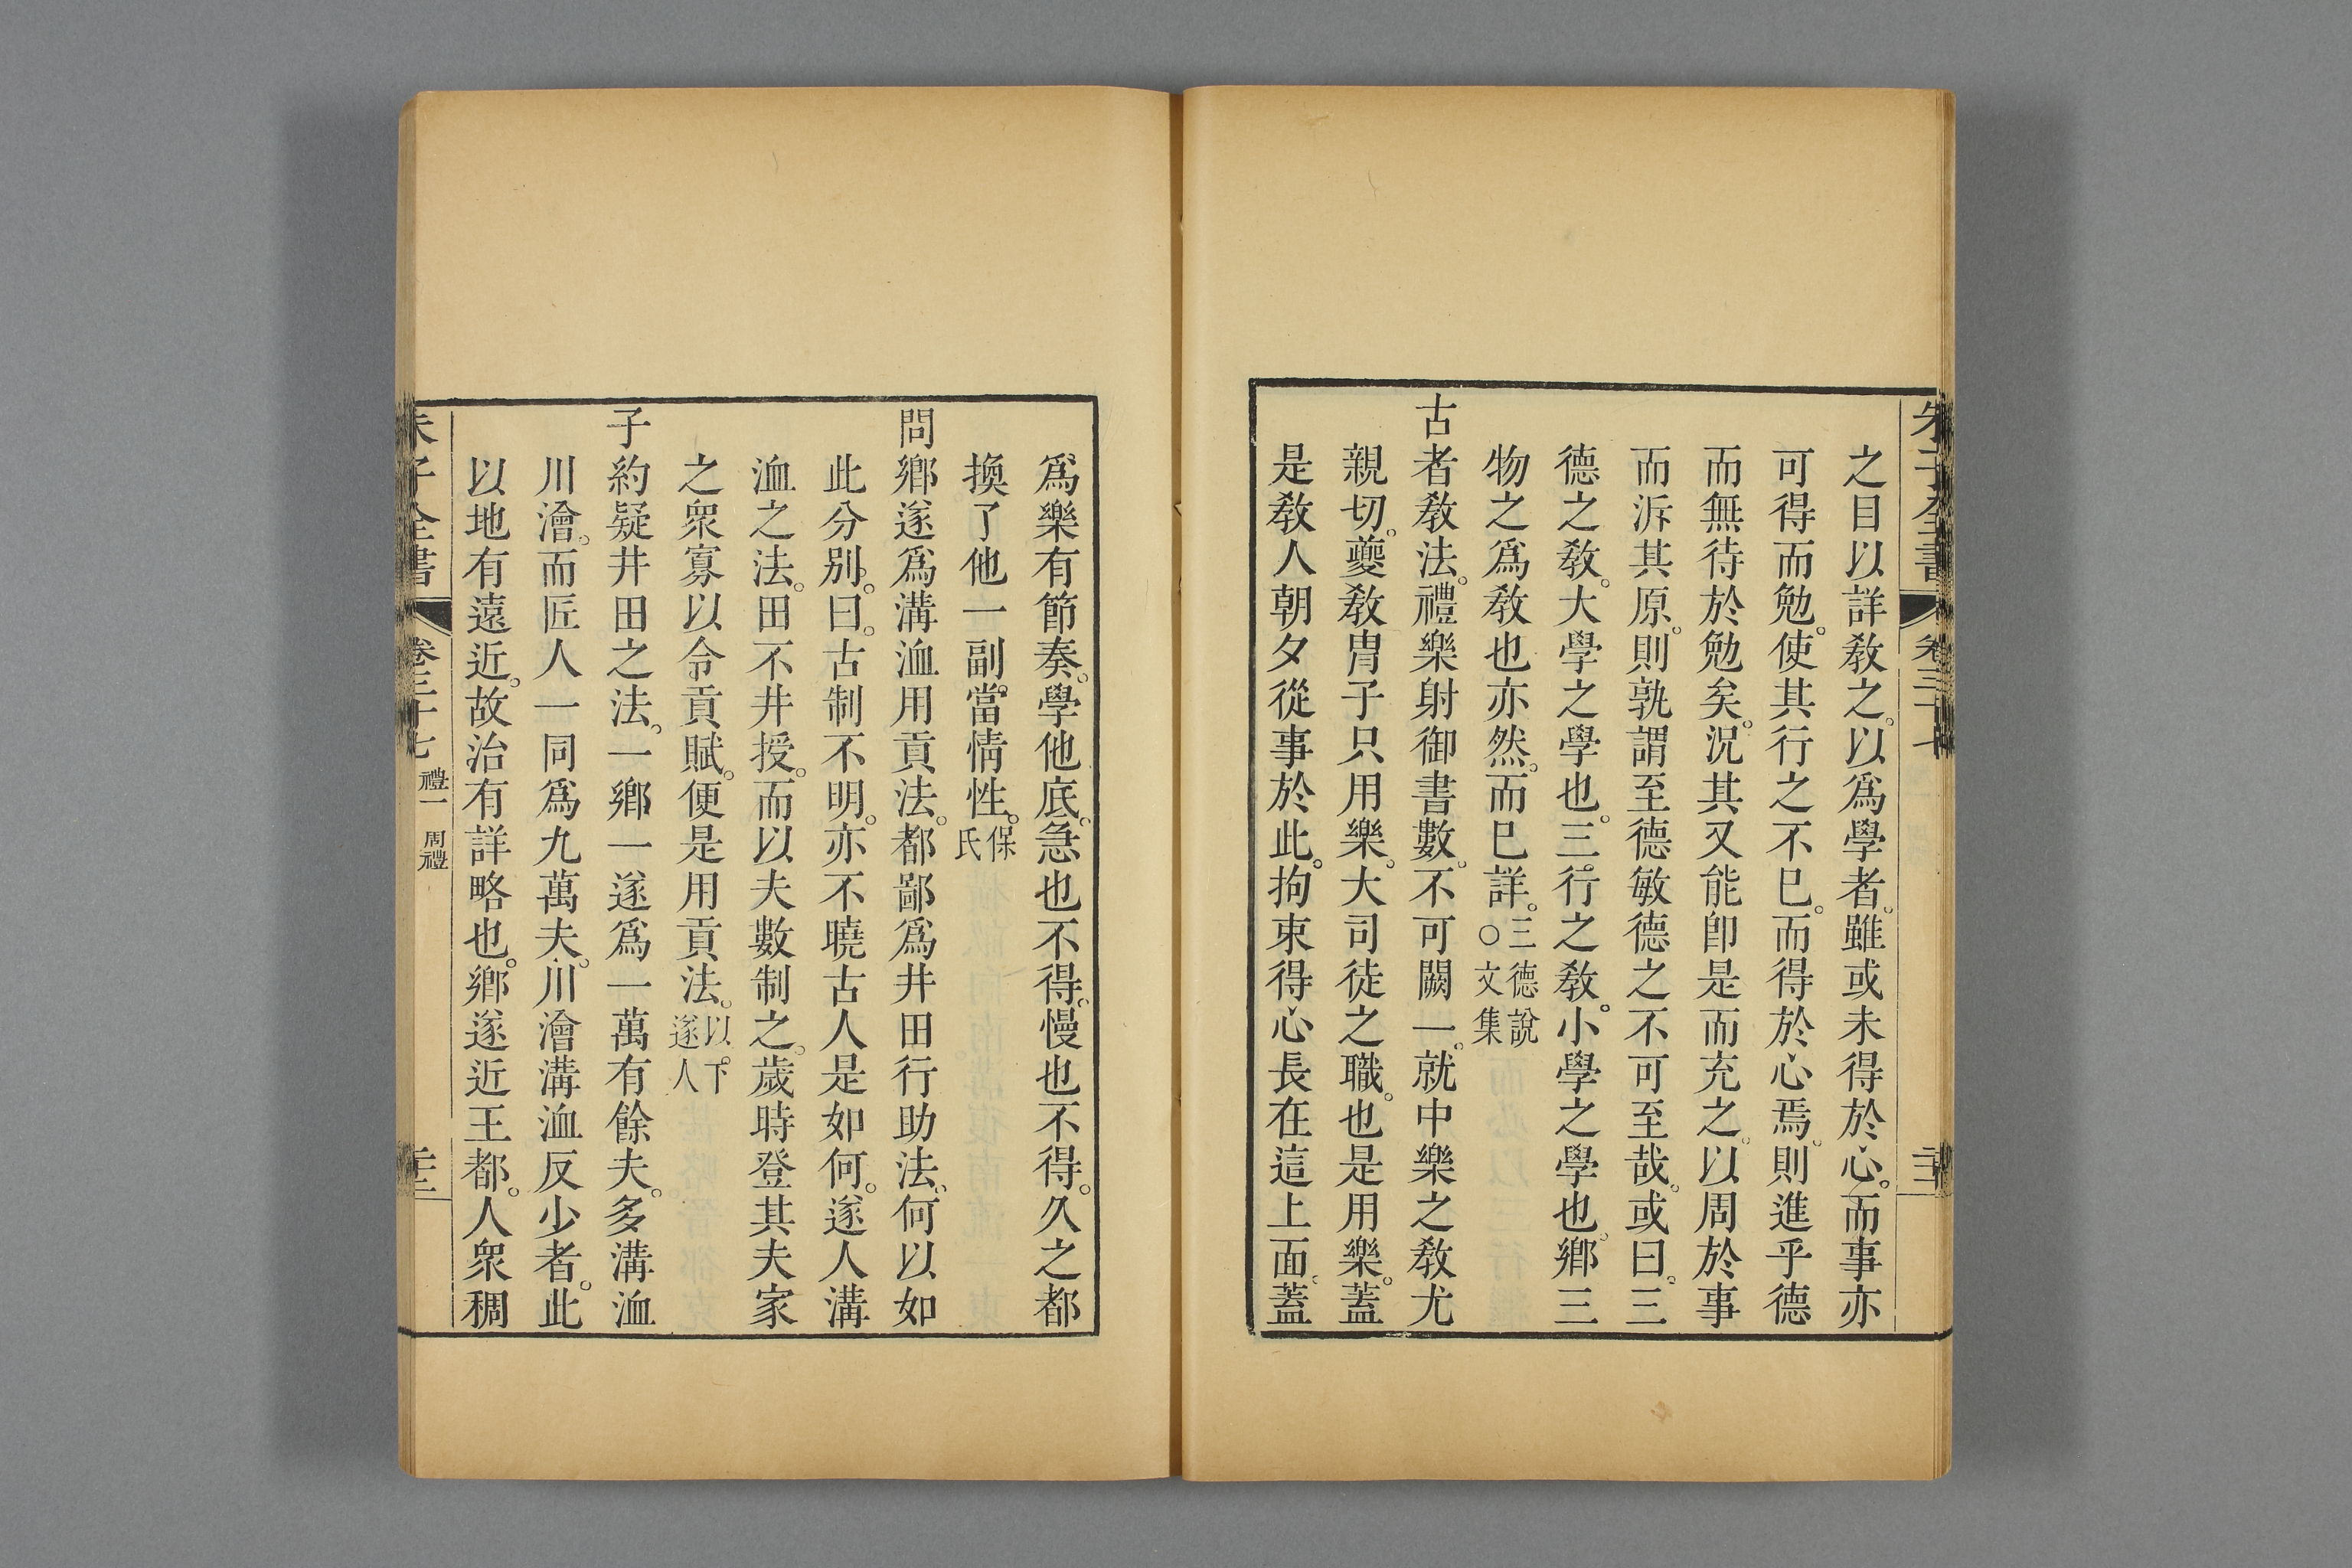 之目以詳敎之。以爲學者。雖或未得於心。而事亦
可得而勉。使其行之不已。而得於心焉。則進乎德
而無待於勉矣。況其又能卽是而充之。以周於事
而泝其原。則孰謂至德敏德之不可至哉。或曰。三
德之敎。大學之學也。三行之敎。小學之學也。鄉三
物之爲敎也亦然。而已詳。三德說○文集
古者敎法。禮樂射御書數。不可闕一。就中樂之敎尤
親切。夔敎胄子只用樂。大司徒之職。也是用樂。蓋
是敎人朝夕從事於此。拘束得心長在這上面。蓋
爲樂有節奏。學他底。急也不得。慢也不得。久之都
換了他一副當情性。保氏
問鄉遂爲溝洫用貢法。都鄙爲井田行助法。何以如
此分别。曰。古制不明。亦不曉古人是如何。遂人溝
洫之法。田不井授。而以夫數制之。歲時登其夫家
之衆寡以令貢賦。便是用貢法。以下遂人
子約疑井田之法。一鄉一遂爲一萬有餘夫。多溝洫
川澮。而匠人一同爲九萬夫。川澮溝洫反少者。此
以地有遠近。故治有詳略也。鄉遂近王都。人衆稠
朱子全書
卷三十七
禮一 周禮